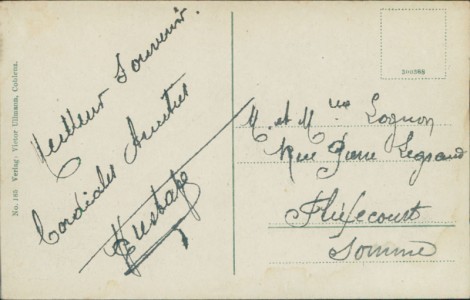 Meilleur Souvenir.
Cordiales Amitiés
No. 189 Verlag: Victor Ullmann, Coblenz.
M. et Mme Lognon
Rue Pierre Legrand
Flixecourt
Somme